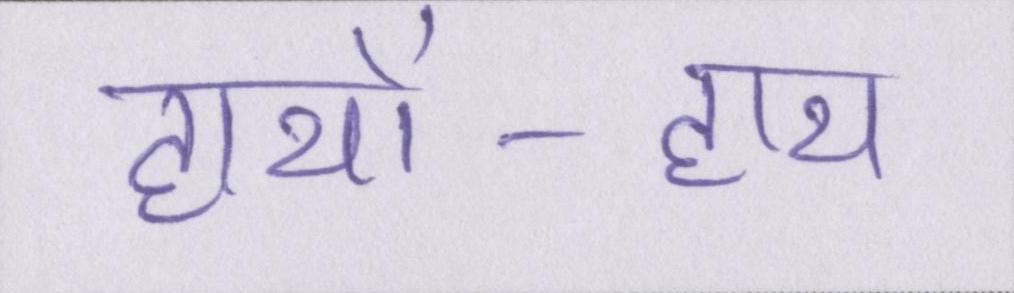 हाथों - हाथ